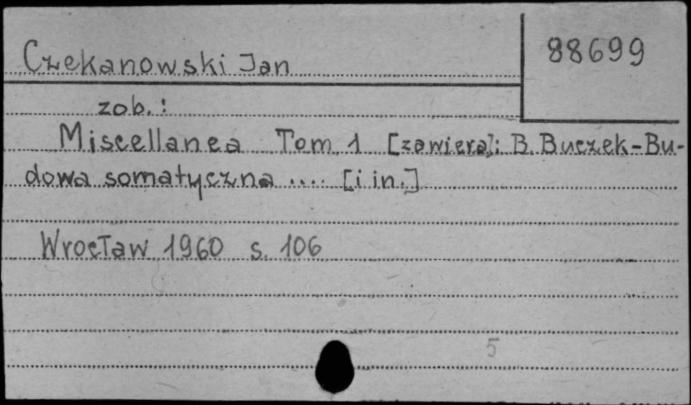 Czekanowski Jan
88699
zob.:
Miscellanea Tom 1 [zawiera]: B. Buczek-Bu-
dowa somatyczna .... [i in.]
Wrocław 1960 s. 106
5